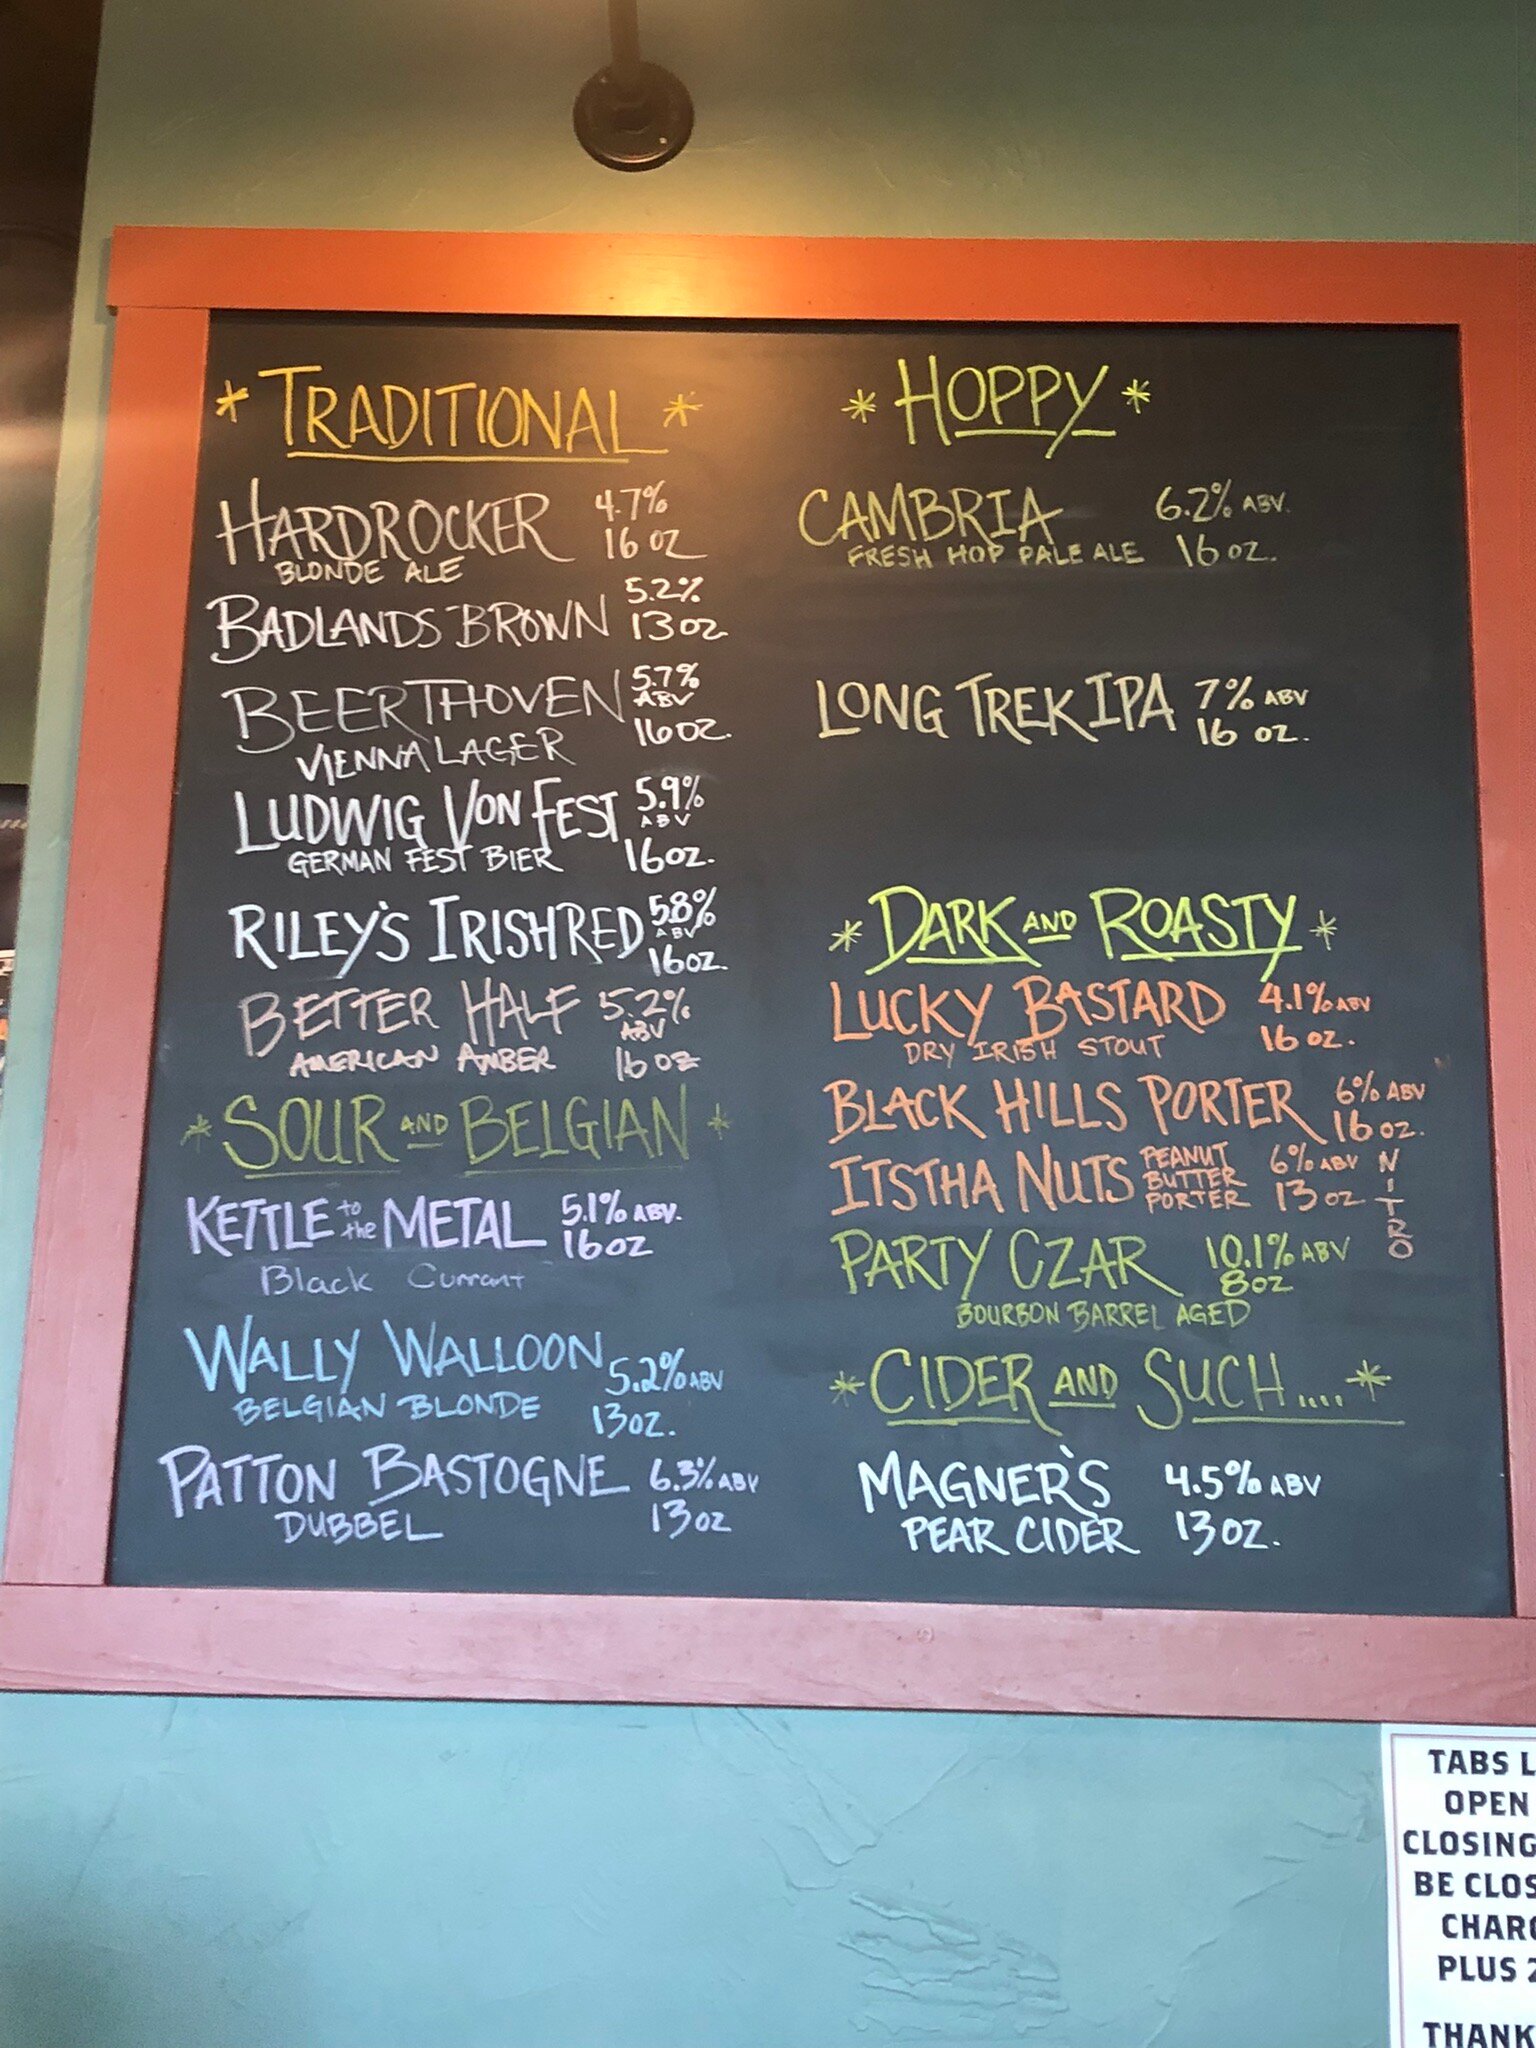 * TRADITIONAL *
HARDROCKER 4.7%
16 OZ
BLONDE ALE
BADLANDS BROWN 5.2%
13 OZ
BEERTHOVEN 5.7%
ABV
VIENNA LAGER 16 OZ.
LUDWIG VON FEST 5.9%
ABV
GERMAN FEST BIER 16 OZ.
RILEY'S IRISH RED 5.8%
ABV
16 OZ.
BETTER HALF 5.2%
ABV
AMERICAN AMBER 16 OZ
* SOUR AND BELGIAN *
KETTLE to the METAL 5.1% ABV.
16 OZ
Black Currant
WALLY WALLOON 5.2% ABV
BELGIAN BLONDE 13 OZ.
PATTON BASTOGNE 6.3% ABV
DUBBEL 13 OZ
* HOPPY *
CAMBRIA 6.2% ABV.
FRESH HOP PALE ALE 16 OZ.
LONG TREK IPA 7% ABV
16 OZ.
* DARK AND ROASTY *
LUCKY BASTARD 4.1% ABV
DRY IRISH STOUT 16 OZ.
BLACK HILLS PORTER 6% ABV
16 OZ.
ITSTHA NUTS PEANUT BUTTER PORTER 6% ABV
13 OZ
NITRO
PARTY CZAR 10.1% ABV
8 OZ
BOURBON BARREL AGED
* CIDER AND SUCH.... *
MAGNER'S 4.5% ABV
PEAR CIDER 13 OZ.
TABS
OPEN
CLOSING
BE
PLUS
THANK